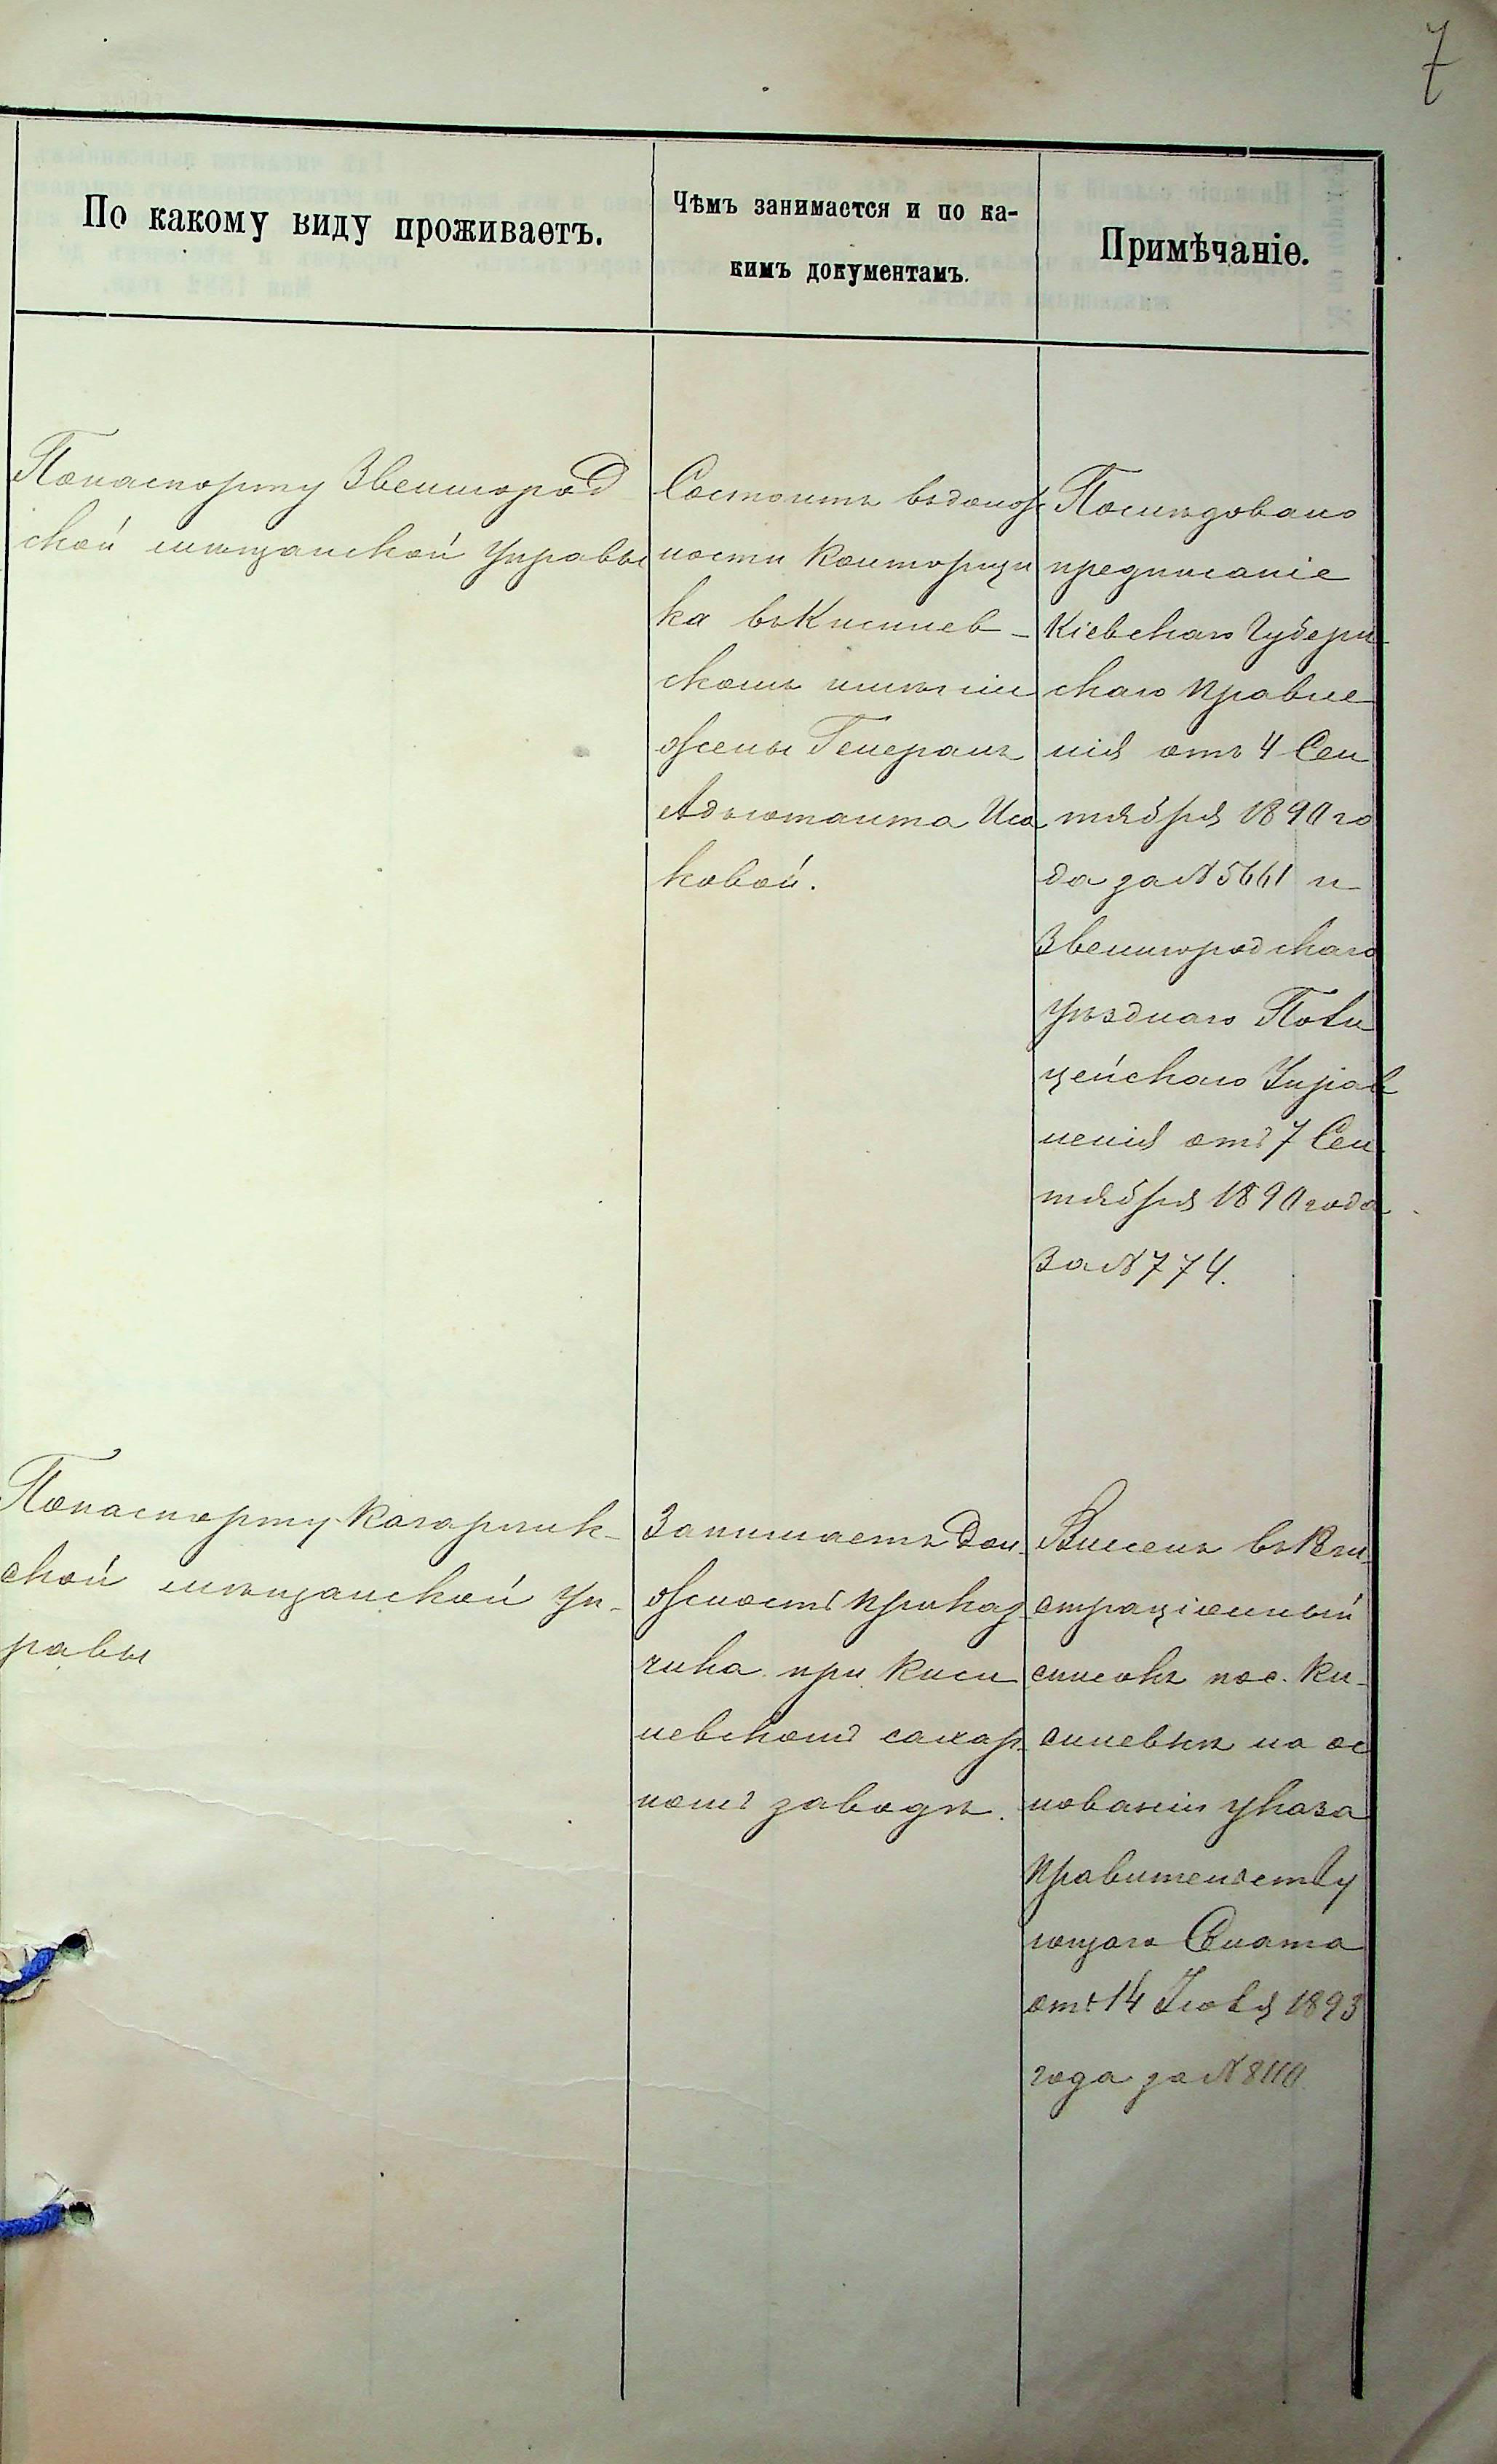 7
По какому виду проживаетъ.
Чѣмъ занимается и по ка-
кимъ документамъ.
Примѣчаніе.
Попаспорту Звенигород
ской мѣщанской Управы
Состоитъ въ долж
ности Конторщи
ка въ Кисилев-
скомъ имѣніи
жены Генералъ
Адъютанта Иса
ковой.
Послѣдовало
предписаніе
Кіевскаго Губерн-
скаго Правле
нія отъ 4 Сен
тября 1890 го
да за № 5661 и
Звенигородскаго
Уѣзднаго Поли
цейскаго Управ
ленія отъ 7 Сен
тября 1890 года
за № 774.
Попаспорту Кагарлик-
ской мѣщанской Уп-
равы
Занимаетъ дол-
жность приказ-
чика при Киси
левскомъ сахар-
номъ заводѣ.
Внесенъ въ
страціонный
списокъ пос. Ки-
силевкѣ на ос
нованіи указа
Правительству
ющаго Сената
отъ 14 Іюля 1893
года за №